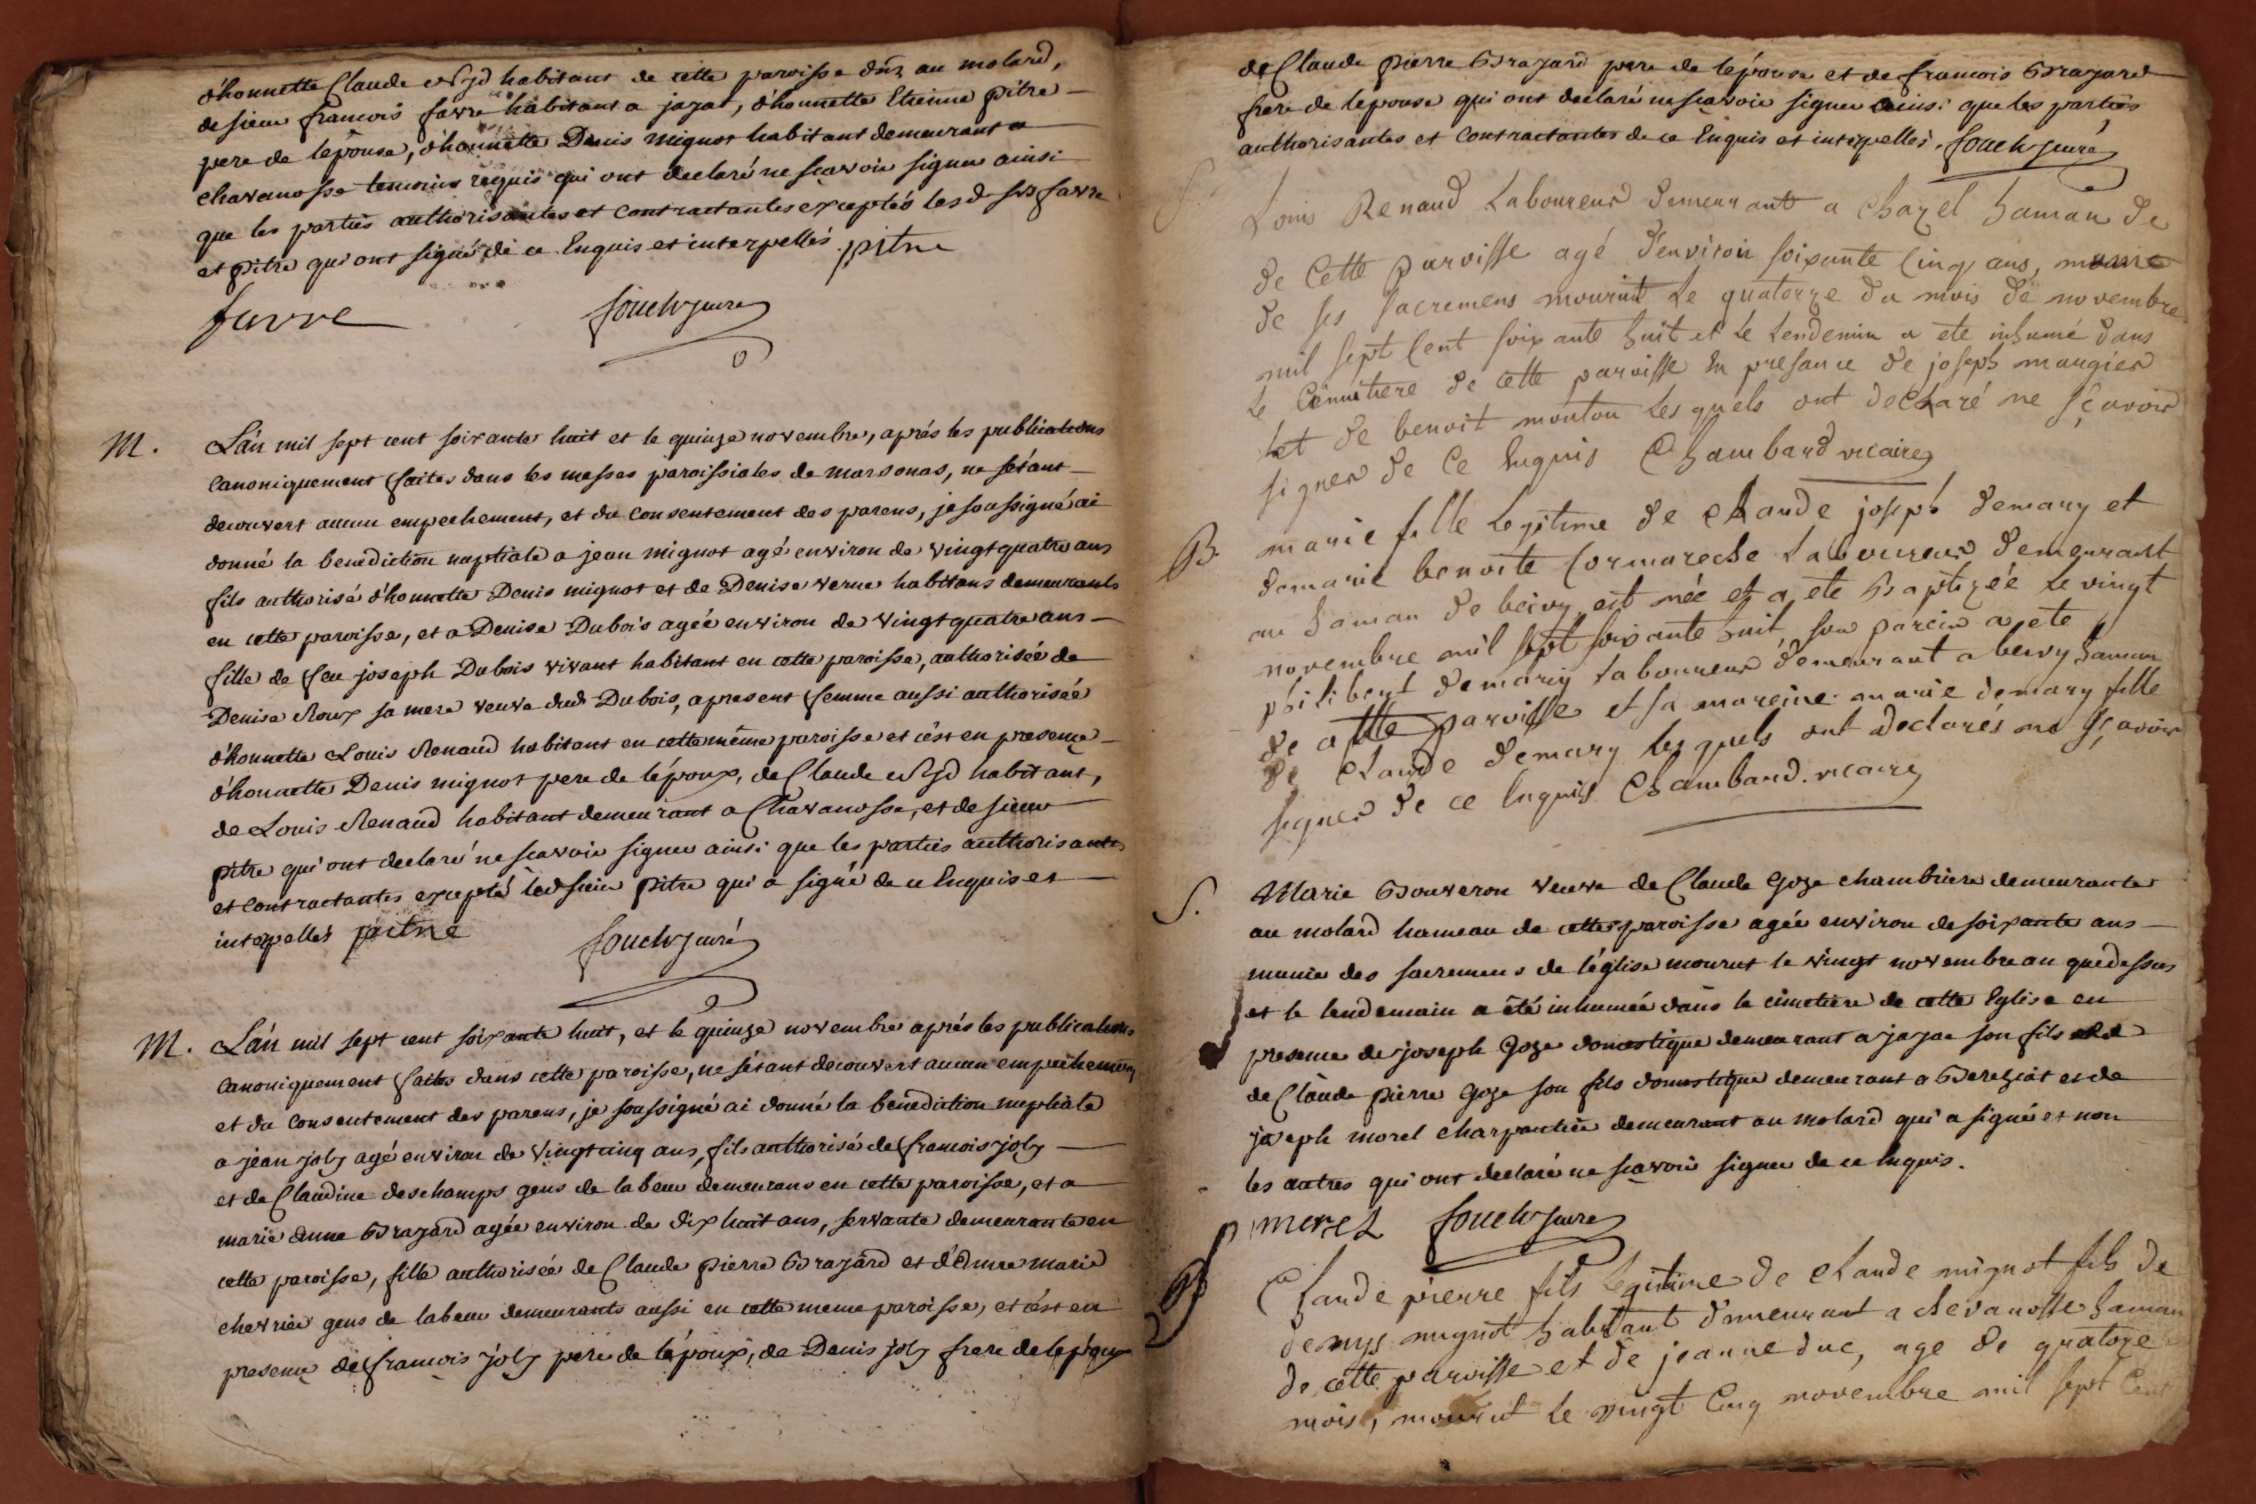 d'honnette Claude habitant de cette paroisse au molard,
de sieur francois favre habitant a jayat, d'honnette Etienne pitre
pere de lépouse, d'honnette Denis mignot habitant demeurant a
chavanosse temoins requis qui ont declaré ne scavoir signer ainsi
que les parties authorisantes et contractantes exceptés lesd. srs favre
et pitre qui ont signé de ce Enquis et interpellés. pitre
favre fouch curé
M. L'an mil sept cent soixante huit et le quinze novembre, aprés les publications
canoniquement faites dans les messes paroissiales de marsonas, ne s'étant
decouvert aucun empechement, et du consentement des parens, je soussigné ai
donné la benediction nuptiale a jean mignot agé environ de vingt quatre ans
fils authorisé d'honnette Denis mignot et de Denise verne habitans demeurants
en cette paroisse, et a Denise Dubois agée environ de vingt quatre ans
fille de feu joseph Dubois vivant habitant en cette paroisse, authorisée de
Denise Roux sa mere veuve dud. Dubois, a present femme aussi authorisée
d'honnette Louis Renaud habitant en cette même paroisse et c'est en presence
d'honnette Denis mignot pere de l'époux, de Claude habitant,
de Louis Renaud habitant demeurant a Chavanosse, et de sieur
pitre qui ont declaré ne scavoir signer ainsi que les parties authorisantes
et contractantes excepté led. sieur pitre qui a signé de ce Enquis et
interpellés pitre fouch curé
M. L'an mil sept cent soixante huit, et le quinze novembre aprés les publications
canoniquement faites dans cette paroisse, ne s'étant decouvert aucun empéchement
et du consentement des parens, je soussigné ai donné la benediction nuptiale
a jean joly agé environ de vingt cinq ans, fils authorisé de francois joly
et de Claudine deschamps gens de labeur demeurans en cette paroisse, et a
marie anne Brazard agée environ de dix huit ans, servante demeurante en
cette paroisse, fille authorisée de Claude pierre Brazard et d'Anne marie
chevrier gens de labeur demeurants aussi en cette meme paroisse, et c'est en
presence de francois joly pere de l'époux, de Denis joly frere de l'époux
de Claude pierre Brazard pere de l'épouse et de francois Brazard
frere de lepouse qui ont declaré ne scavoir signer ainsi que les parties
authorisantes et contractantes de ce Enquis et interpellés. fouch curé
S. Louis Renaud Laboureur demeurant a Chazel hamau de
de Cette parroisse agé d'environ soixante cinq ans, munie
de ses sacremens mourut le quatorze du mois de novembre
mil sept cent soixante huit et le lendemin a ete inhumé dans
le cimmitiere de cette parroisse En presance de joseph maugier
et de benoit mouton lesquels ont declaré ne sçavoir
signer de ce Enquis Chambard vicaire
B. marie fille legitime de claude joseph demary et
de marie benoite Cormareche Laboureur demeurant
au hamau de beivy est née et a ete baptizée le vingt
novembre mil sept soixante huit, son parein a ete
philibert demary laboureur demeurant a beivy hamau
de cette parroisse et sa mareine marie demary fille
de claude demary lesquels ont declarés ne sçavoir
signer de ce Enquis Chambard. vicaire
S. Marie Bouveron veuve de Claude Goze chambriere demeurante
au molard hameau de cette paroisse agée environ de soixante ans
munie des sacremens de l'église mourut le vingt novembre an que dessus
et le lendemain a été inhumée dans le cimetiere de cette Eglise en
presence de joseph Goze domestique demeurant a jayat son fils
de Claude pierre Goze son fils domestique demeurant a Bereziat et de
joseph morel charpentier demeurant au molard qui a signé et non
les autres qui ont declaré ne scavoir signer de ce Enquis.
morel fouch curé
Claude pierre fils legitime de claude mignot fils de
denys mignot habitant demeurant a chevanosse hamau
de cette parroisse et de jeanne duc, age de quatorze
mois, mourut le vingt cinq novembre mil sept Cent